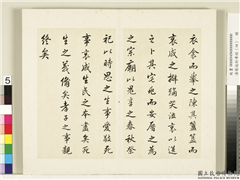 衣衾而舉之陳其簠簋而
哀戚之擗踊哭泣哀以送
之卜其宅兆而安厝之為
之宗廟以鬼享之春秋祭
祀以時思之生事愛敬死
事哀戚生民之本盡矣死
生之義備矣孝子之事親
終矣
5